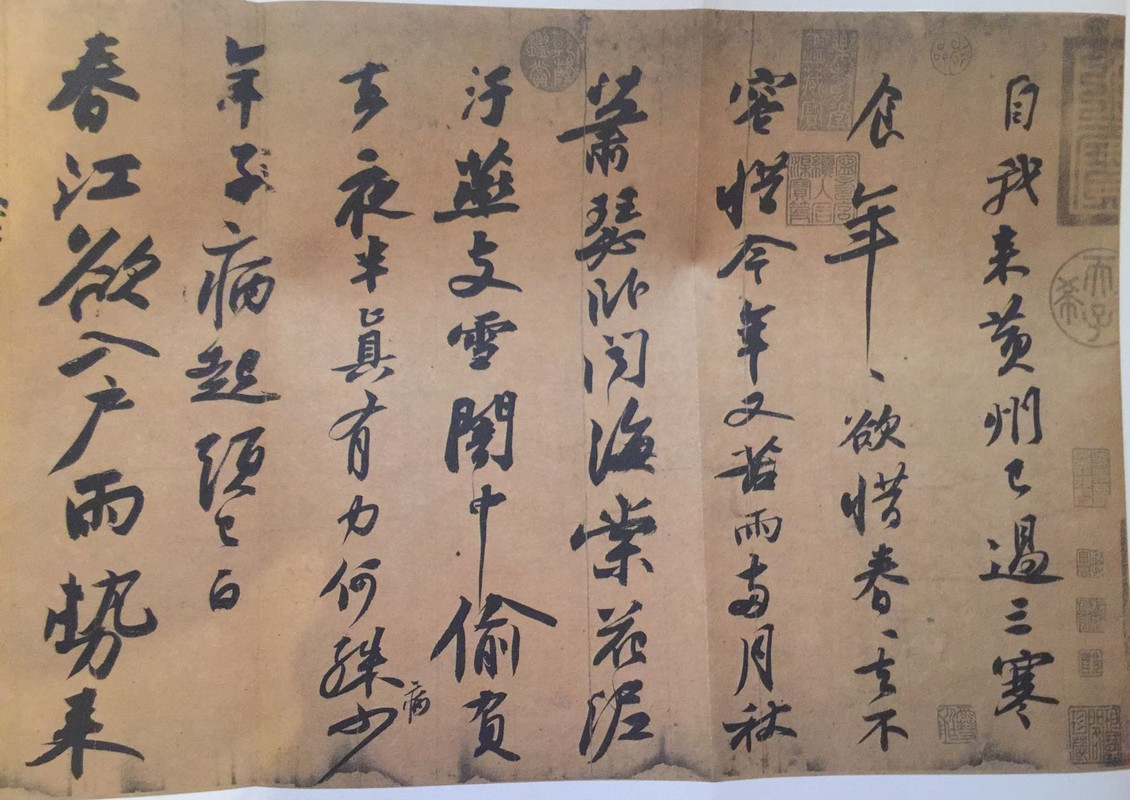 自我来黄州已過三寒
食年、欲惜春、去不
容惜今年又苦雨兩月秋
蕭瑟卧聞海棠花泥
汙燕支雪闇中偷負
去夜半真有力何殊少
病
年子病起頭已白
春江欲入户雨勢来